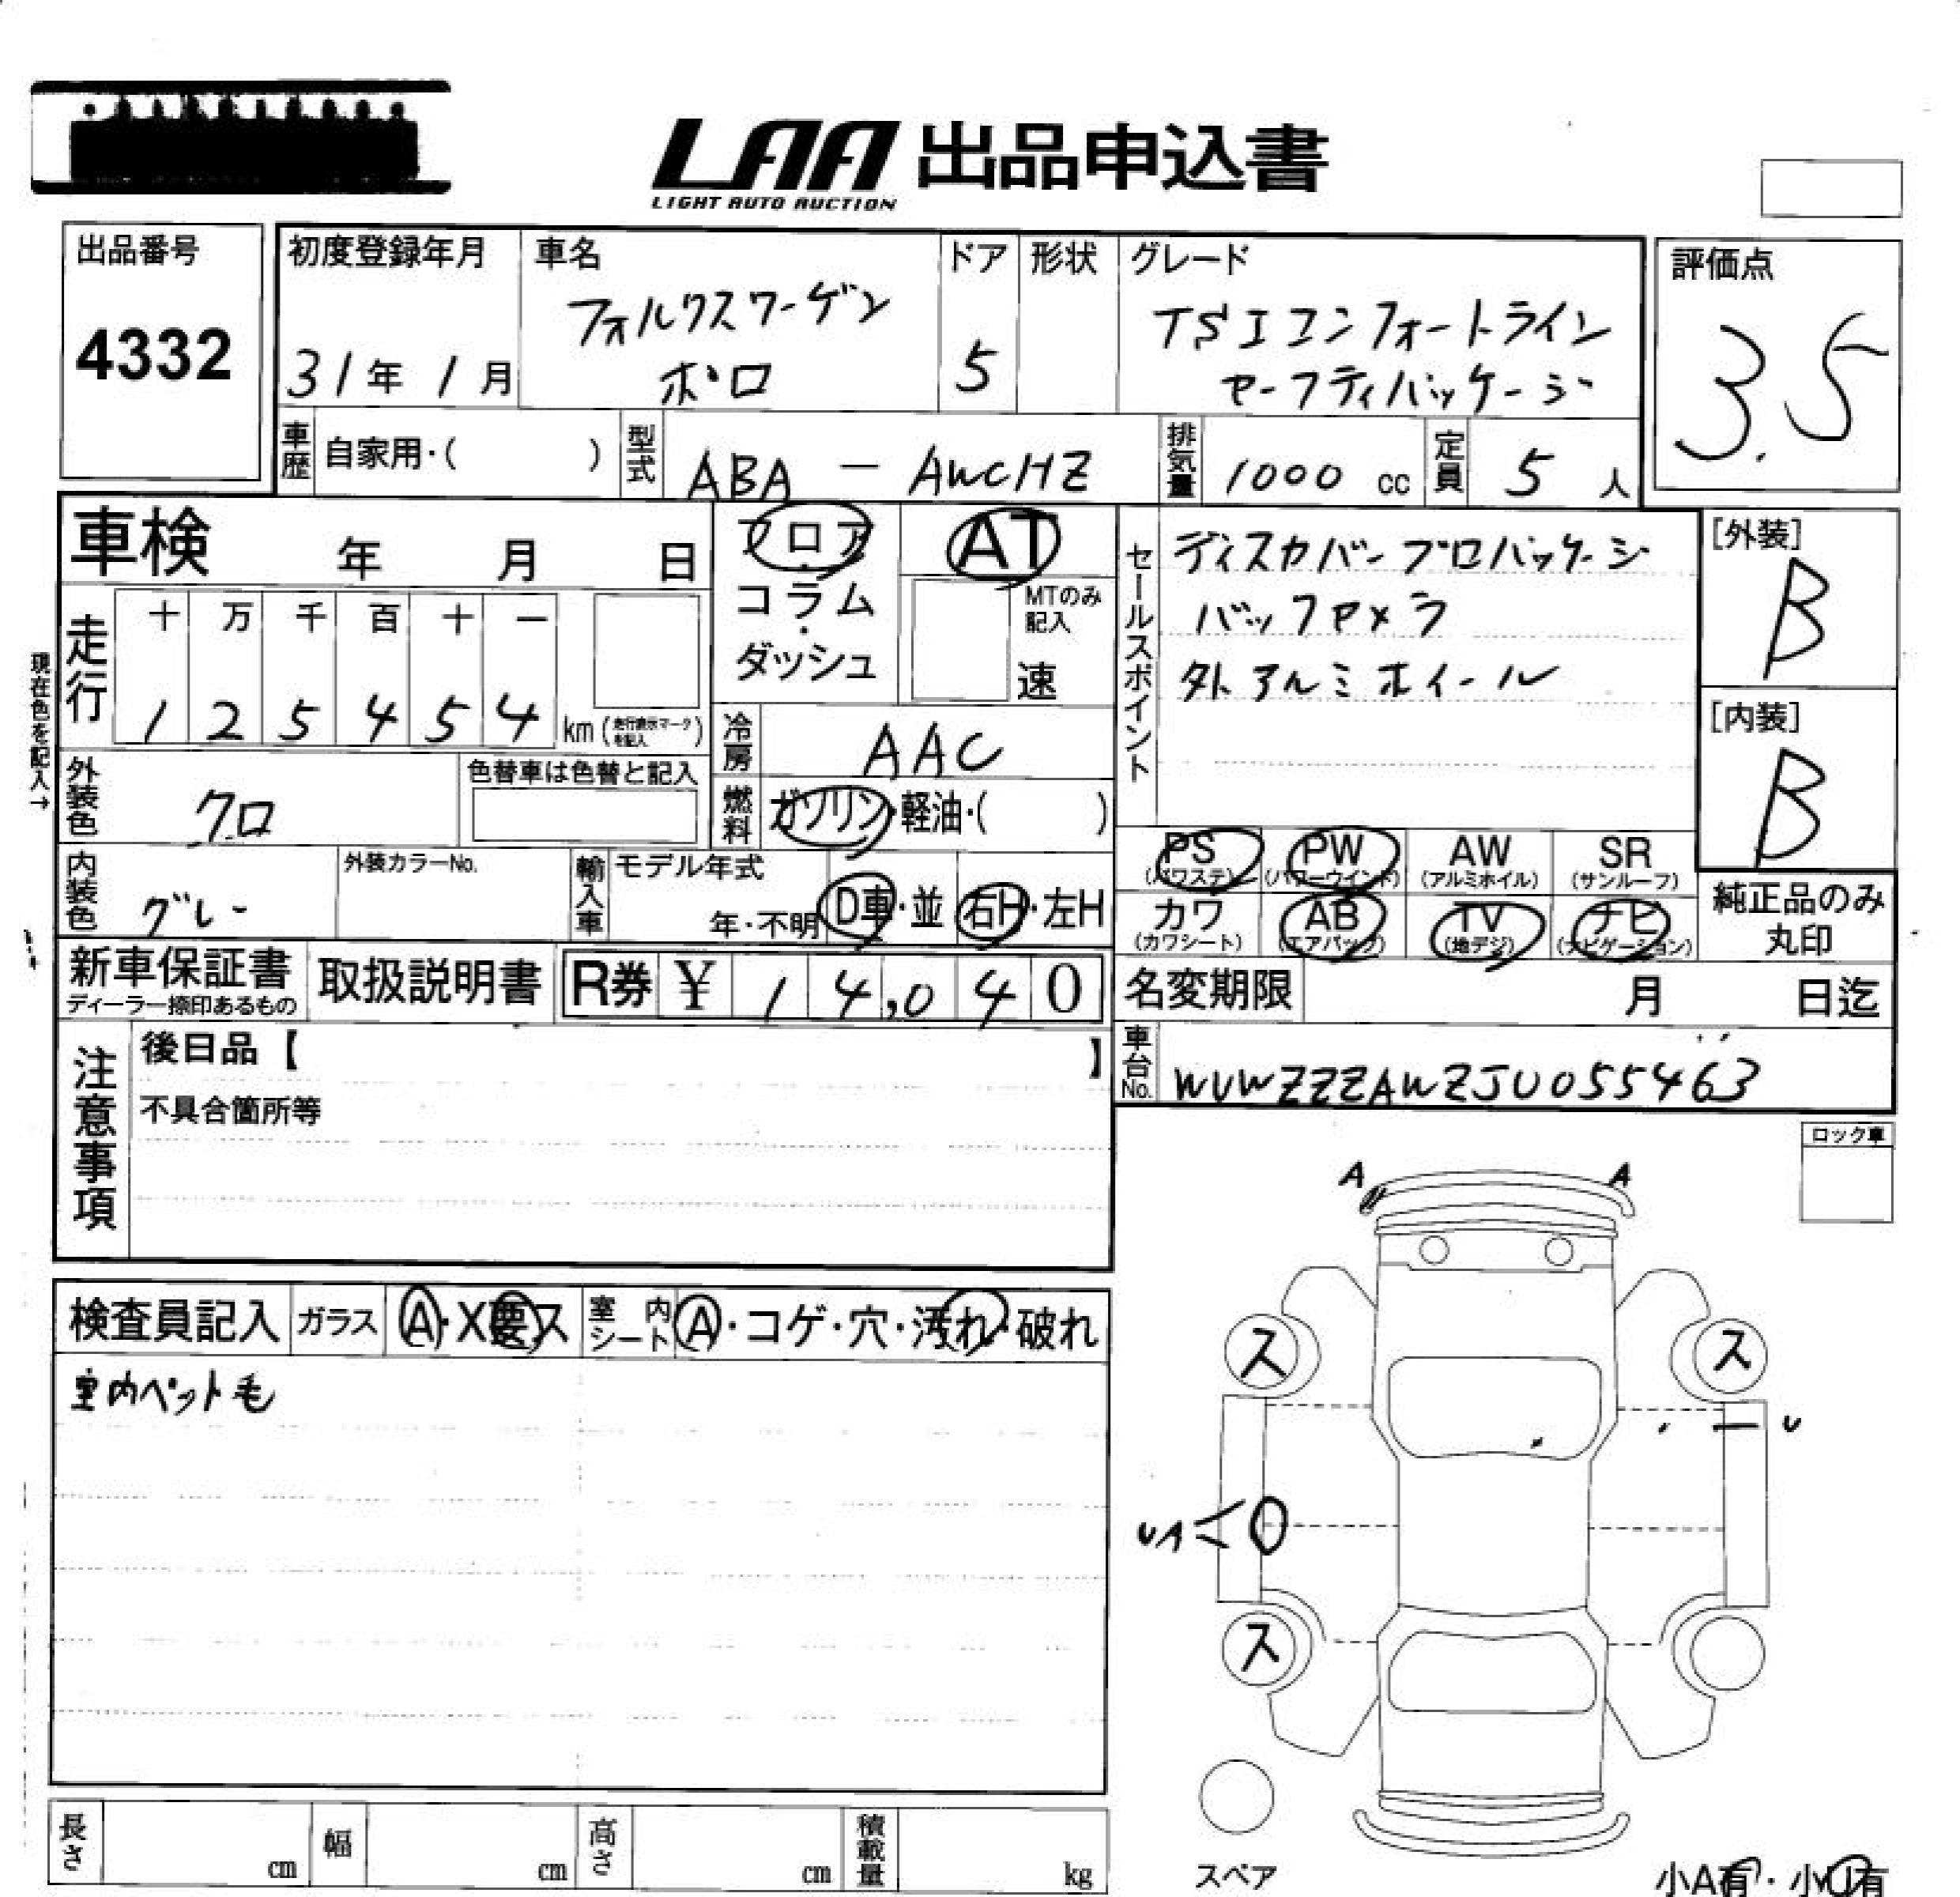 LAA 出品申込書
LIGHT AUTO AUCTION
出品番号
4332
初度登録年月
31年 1月
車名
フォルクスワーゲン
ポロ
ドア
5
形状
グレード
TSIコンフォートライン
セーフティパッケージ
評価点
3.5
車歴
自家用・( )
型式
ABA － AWCHZ
排気量
1000 cc
定員
5 人
車検 年 月 日
フロア・コラム・ダッシュ
AT
MTのみ記入
速
セールスポイント
ディスカバープロパッケージ
バックカメラ
外アルミホイール
[外装]
B
[内装]
B
現在色を記入→
走行
十 万 千 百 十 一
1 2 5 4 5 4 km (走行表示マークを記入)
冷房
AAC
外装色
クロ
色替車は色替と記入
燃料
ガソリン・軽油・( )
内装色
グレー
外装カラーNo.
輸入車
モデル年式
年・不明
D車・並
右H・左H
PS (パワステ)
PW (パワーウインド)
AW (アルミホイル)
SR (サンルーフ)
カワ (カワシート)
AB (エアバック)
TV (地デジ)
ナビ (ナビゲーション)
純正品のみ丸印
新車保証書
ディーラー捺印あるもの
取扱説明書
R券 ¥ 1 4,0 4 0
名変期限 月 日迄
注意事項
後日品【 】
不具合箇所等
車台No.
WVWZZZAWZJU055463
ロック車
検査員記入
ガラス
A・X要ス
室内シート
A・コゲ・穴・汚れ・破れ
室内ペット毛
A A
ス ス
U
UA
ス
スペア
小A有・小U有
長さ cm
幅 cm
高さ cm
積載量 kg